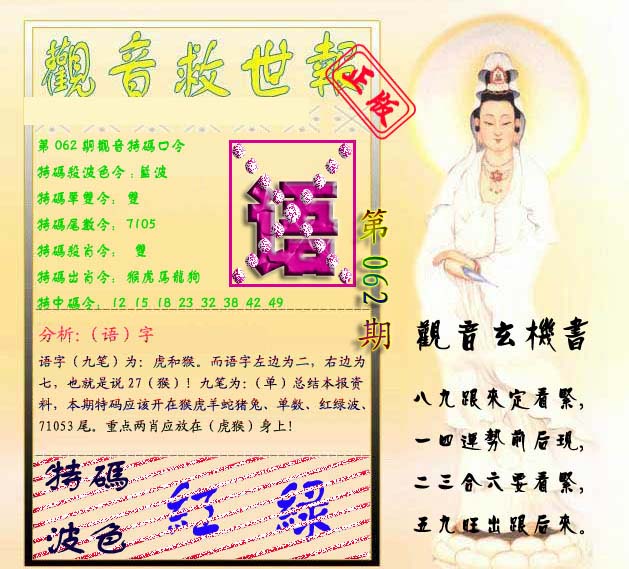 觀音救世報
正版
第062期觀音特碼口令
特碼殺波色令:藍波
特碼單雙令： 雙
特碼尾數令： 7105
特碼殺肖令： 雙
特碼出肖令： 猴虎馬龍狗
特中碼令： 12 15 18 23 32 38 42 49
语
第062期
分析:（语）字
语字（九笔）为：虎和猴。而语字左边为二，右边为
七，也就是说27（猴）！九笔为:（单）总结本报资
料，本期特码应该开在猴虎羊蛇猪兔、单数、红绿波、
71053尾。重点两肖应放在（虎猴）身上！
特碼
波色
紅 綠
觀音玄機書
八九跟來定看緊，
一四運勢前后現，
二三合六要看緊，
五九旺出跟后來。